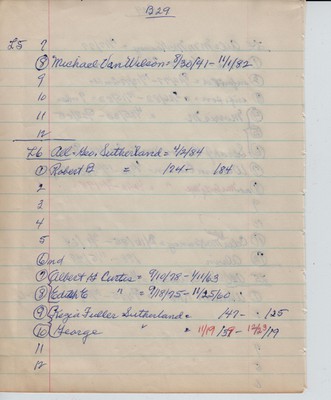 B29
L5 7
(8) Michael Van Wilson = 8/30/41 - 11/1/82
9
10
11
12
L6 Geo. Sutherland = 4/2/84
(1) Robert B " = /24 - /84
2
3
4
5
(6) nd
(7) Albert H Curtis = 9/10/78 - 4/1/63
(8) Edith C " = 9/18/75 - 11/25/60
(9) Fuller Sutherland = /47 - /25
(10) George " = 11/19/38 - 12/23/19
11
12